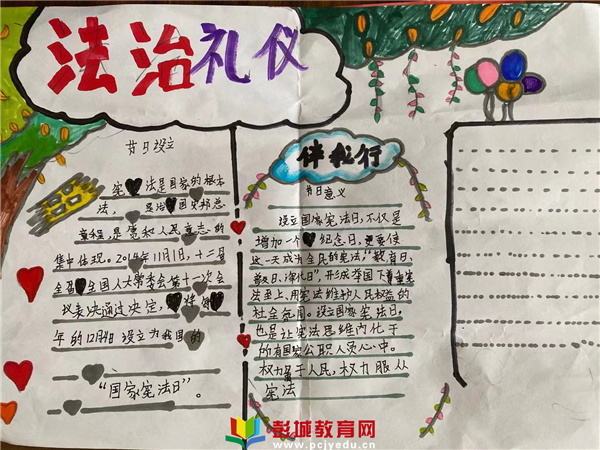 法治礼仪
节日设立
宪法是国家的根本
法，是治国安邦总
章程，是党和人民意志的
集中体现。2014年11月1日，十二届
全国人大常委会第十一次会
议表决通过决定，将每
年的12月4日设立为我国的
“国家宪法日”。
伴我行
节日意义
设立国家宪法日，不仅是
增加一个纪念日，更要使
这一天成为全民的宪法“教育日、
普及日、深化日”，形成举国上下尊重宪
法至上、用宪法维护人民权益的
社会氛围。设立国家宪法日，
也是让宪法思维内化于
所有国家公职人员心中。
权力属于人民，权力服从
宪法
彭城教育网
www.pcjyedu.cn